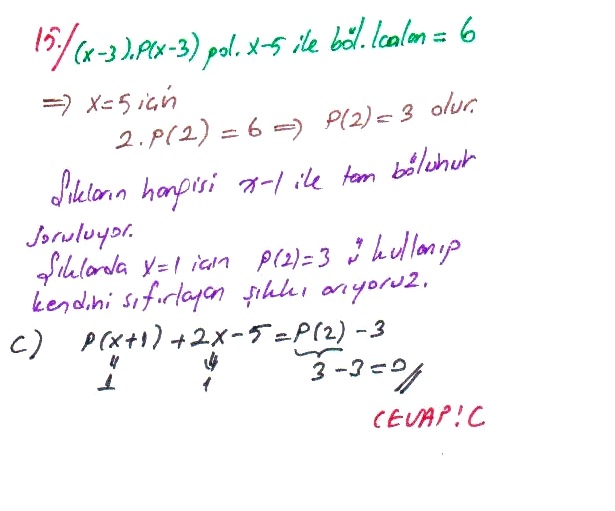 15./ (x-3).P(x-3) pol. x-5 ile böl. kalan = 6
⇒ x=5 için
2.P(2) = 6 ⇒ P(2) = 3 olur.
Şıkların hangisi x-1 ile tam bölünür
soruluyor.
Şıklarda x=1 için P(2)=3 ü kullanıp
kendini sıfırlayan şıkkı arıyoruz.
C) P(x+1) + 2x - 5 = P(2) - 3
1 1 3 - 3 = 0//
CEVAP: C